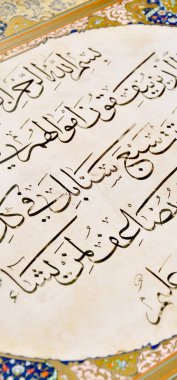 بسم الله الرحمن
الذين ينفقون اموالهم
سبع سنابل في كل
يضاعف لمن يشاء
عليم